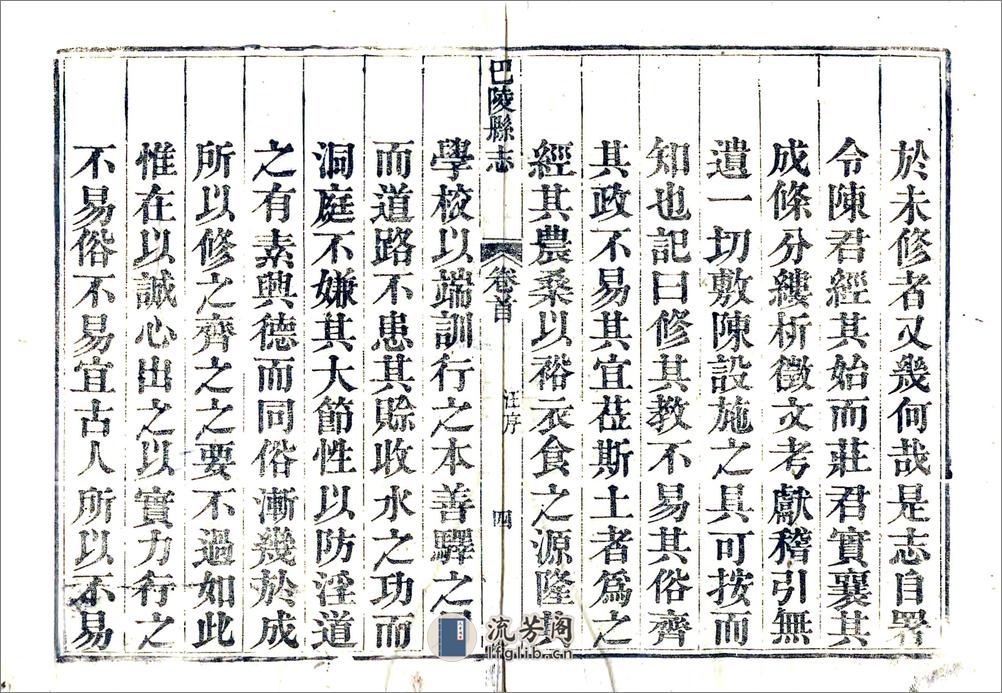 於未修者又幾何哉是志自署
令陳君經其始而莊君實襄其
成條分縷析徵文考獻稽引無
遺一切敷陳設施之具可按而
知也記曰修其教不易其俗齊
其政不易其宜蒞斯土者為之
經其農桑以裕衣食之源隆其
巴陵縣志
卷首
汪序
四
學校以端訓行之本善驛之
而道路不患其賒收水之功而
洞庭不嫌其大節性以防淫道
之有素興德而同俗漸幾於成
所以修之齊之之要不過如此
惟在以誠心出之以實力行之
不易俗不易宜古人所以不易
流芳阁
lfglib.cn